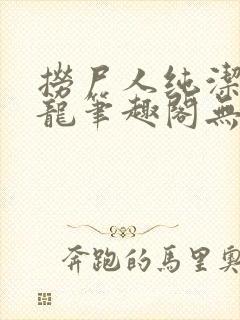 撈尸人純潔
龍筆趣閣無
奔跑的馬里奧